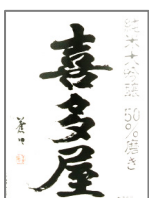 純米大吟醸 50%磨き
喜多屋